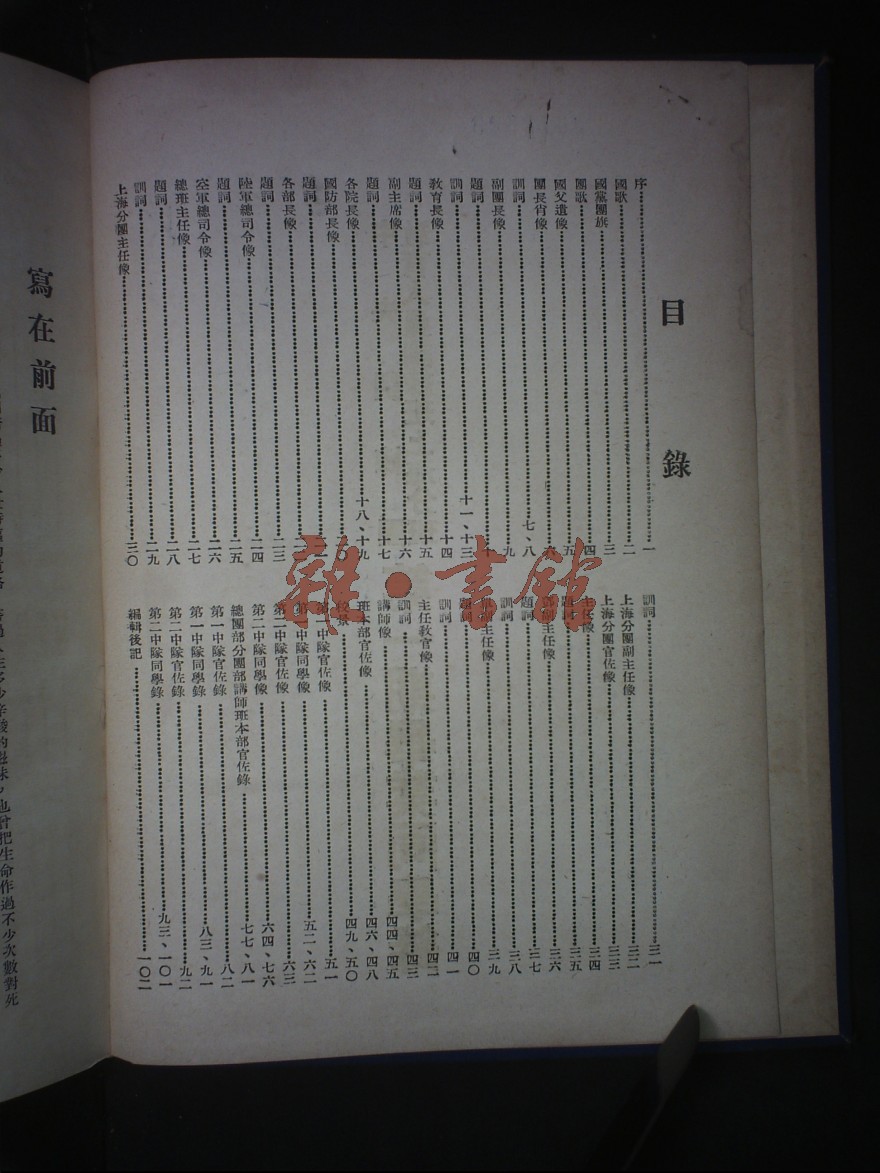 目錄
序 一
國歌 二
國黨團旗 三
團歌 四
國父遺像 五
團長肖像 六
訓詞 七、八
副團長像 九
題詞 十
訓詞 十一、十三
教育長像 十四
題詞 十五
副主席像 十六
題詞 十七
各院長像 十八、十九
國防部長像 二〇
題詞 二一
各部長像 二二
題詞 二三
陸軍總司令像 二四
題詞 二五
空軍總司令像 二六
總班主任像 二七
題詞 二八
訓詞 二九
上海分團主任像 三〇
訓詞 三一
上海分團副主任像 三二
上海分團官佐像 三三
主任像 三四
題詞 三五
副主任像 三六
題詞 三七
訓詞 三八
主任像 三九
題詞 四〇
訓詞 四一
主任教官像 四二
訓詞 四三
講師像 四四、四五
班本部官佐像 四六、四八
校景 四九、五〇
第一中隊官佐像 五一
第一中隊同學像 五二、六二
第二中隊官佐像 六三
第二中隊同學像 六四、七六
總團部分團部講師班本部官佐錄 七七、八一
第一中隊官佐錄 八二
第一中隊同學錄 八三、九一
第二中隊官佐錄 九二
第二中隊同學錄 九三、一〇一
編輯後記 一〇二
寫在前面
的滋味，也曾把生命作過不少次數對死
雜·書館